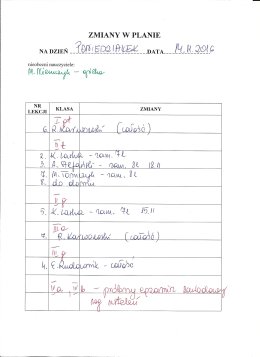 ZMIANY W PLANIE
NA DZIEŃ PONIEDZIAŁEK DATA 14.11.2016
nieobecni nauczyciele:
M. Niemczyk – opieka
NR LEKCJI KLASA ZMIANY
I pt
6. R. Karwowski (całość)
II t
2. K. Lacha - zam. 7l
3. A. - zam. 8l 18.11
7. M. Tomczyk - zam. 8l
8. do domu
II g
5. K. Lacha - zam. 7l 15.11
III a
7. R. Karwowski (całość)
III g
4. E. - całość
II a, II b - próbny egzamin zawodowy
wg ustaleń